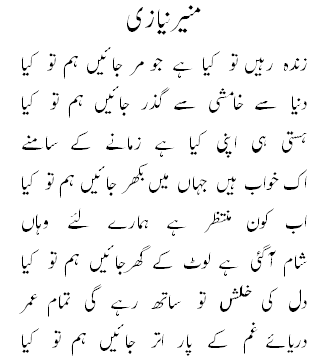 منیر نیازی
زندہ رہیں تو کیا ہے جو مر جائیں ہم تو کیا
دنیا سے خامشی سے گذر جائیں ہم تو کیا
ہستی ہی اپنی کیا ہے زمانے کے سامنے
اک خواب ہیں جہاں میں بکھر جائیں ہم تو کیا
اب کون منتظر ہے ہمارے لئے وہاں
شام آگئی ہے لوٹ کے گھر جائیں ہم تو کیا
دل کی خلش تو ساتھ رہے گی تمام عمر
دریائے غم کے پار اتر جائیں ہم تو کیا